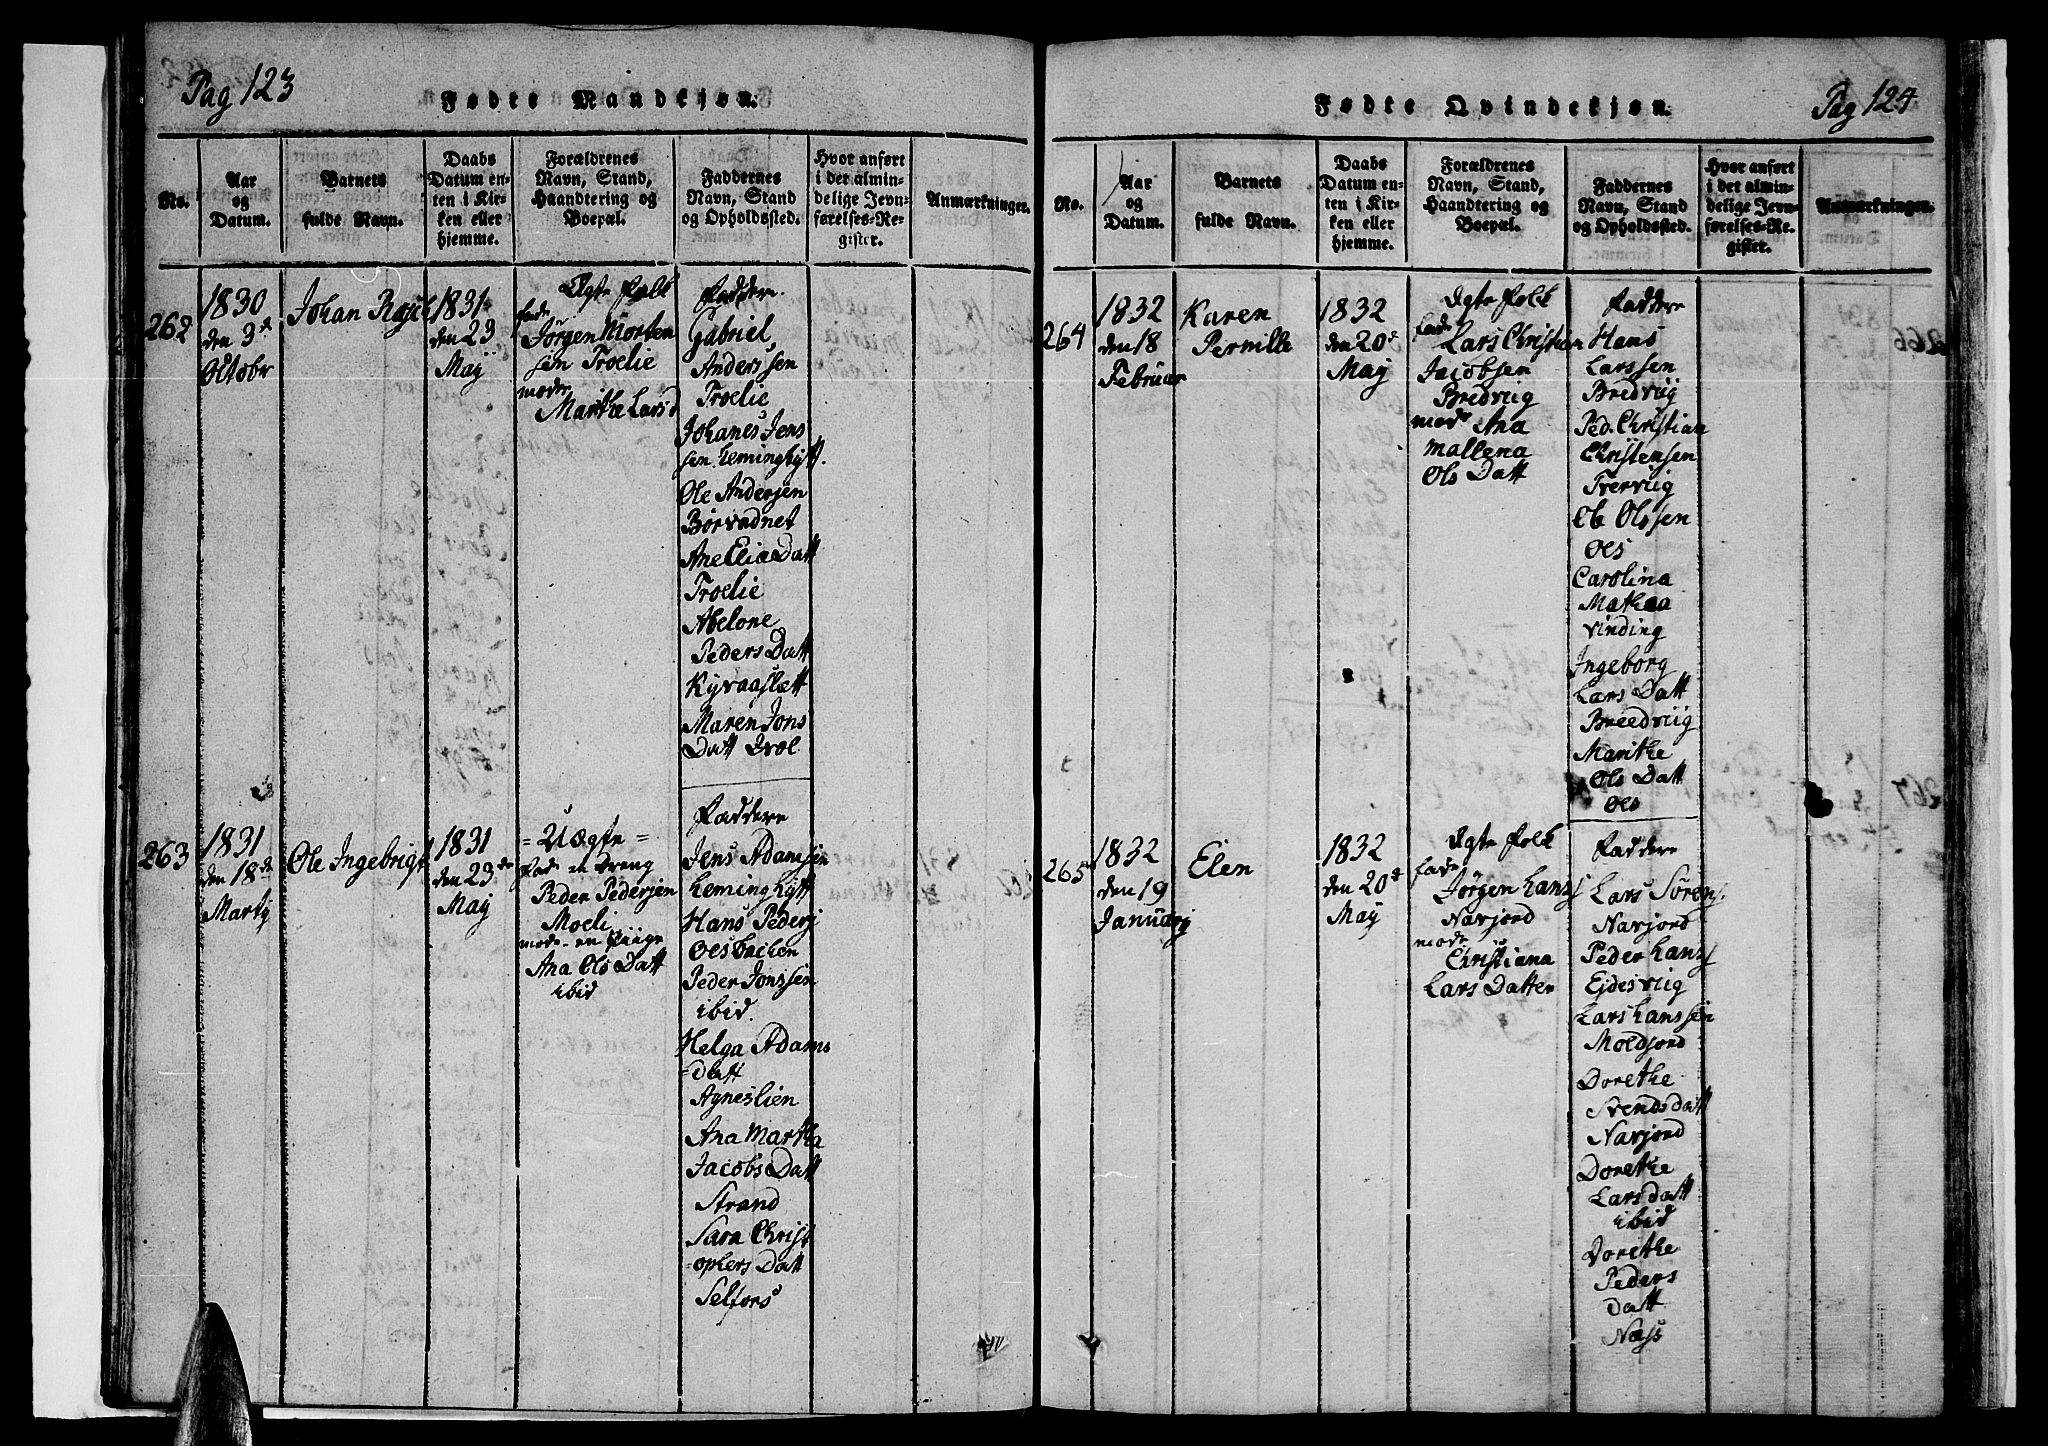 Pag 123
Fødte Mandkjøn.
No.
Aar
og
Datum.
Barnets
fulde Navn.
Daabs
Datum en-
ten i Kir-
ken eller
hjemme.
Forældrenes
Navn, Stand,
Haandtering og
Boepæl.
Faddernes
Navn, Stand
og Opholdssted.
Hvor anført
i det almin-
delige Jevn-
førelses-Re-
gister.
Anmærkninger.
262
1830
den 3d
Octobr
Johan
1831
den 23
Maÿ
Ægte Folk
fade
Jørgen Morten
sen Troelie
mode
Marthe Lars d
Faddere
Gabriel
Anderssen
Troelie
Johanes Jens
sen Leminghÿtt.
Ole Andersen
Børvadnet
Ane Elia Datt
Troelie
Abelone
Peders Datt
Kÿvaaslett
Maren Jons
Datt
263
1831
den 18de
Marty
Ole Ingebrigt
1831
den 23de
Maÿ
= Uægte =
fade en Dreng
Peder Pedersen
Moeli
mode en Piige
Ana Ols Datt
ibid
Faddere
Jens Adamsen
Leminghÿtt
Hans Peders
Oesbacken
Peder Jonssen
ibid.
Helga Adams
=datt
Agneslien
Ana Martha
Jacobs Datt
Strand
Sara Christ
=ophers Datt
Selfors
Pag 124
Fødte Qvindekjøn.
No.
Aar
og
Datum.
Barnets
fulde Navn.
Daabs
Datum en-
ten i Kir-
ken eller
hjemme.
Forældrenes
Navn, Stand,
Haandtering og
Boepæl.
Faddernes
Navn, Stand
og Opholdssted.
Hvor anført
i det almin-
delige Jevn-
førelses-Re-
gister.
Anmærkninger.
264
1832
den 18
Februar
Karen
Pernille
1832
den 20d
Maÿ
Ægte Folk
fade
Lars Christian
Jacobsen
Bredviig
mode Ana
Mallena
Ols Datt
Faddere
Hans
Larssen
Bredviÿ
Ped. Christian
Christensen
Tverviig
Ole Olssen
Oes
Carolina
Mathea
Vinding
Ingeborg
Lars Datt
Breedviig
Marithe
Ols Datt
Oes
265
1832
den 19
Januarÿ
Elen
1832
den 20d
Maÿ
Ægte Folk
fade
Jørgen Hanss
Navjord
mode
Christiana
Lars Datter
Faddere
Lars Sørens.
Navjord
Peder Hanss
Ejdesviig
Lars Hanssen
Moldjord
Dorethe
Svendsdatt
Navjord
Dorethe
Larsdatt
ibid
Dorethe
Peders
datt
Næss